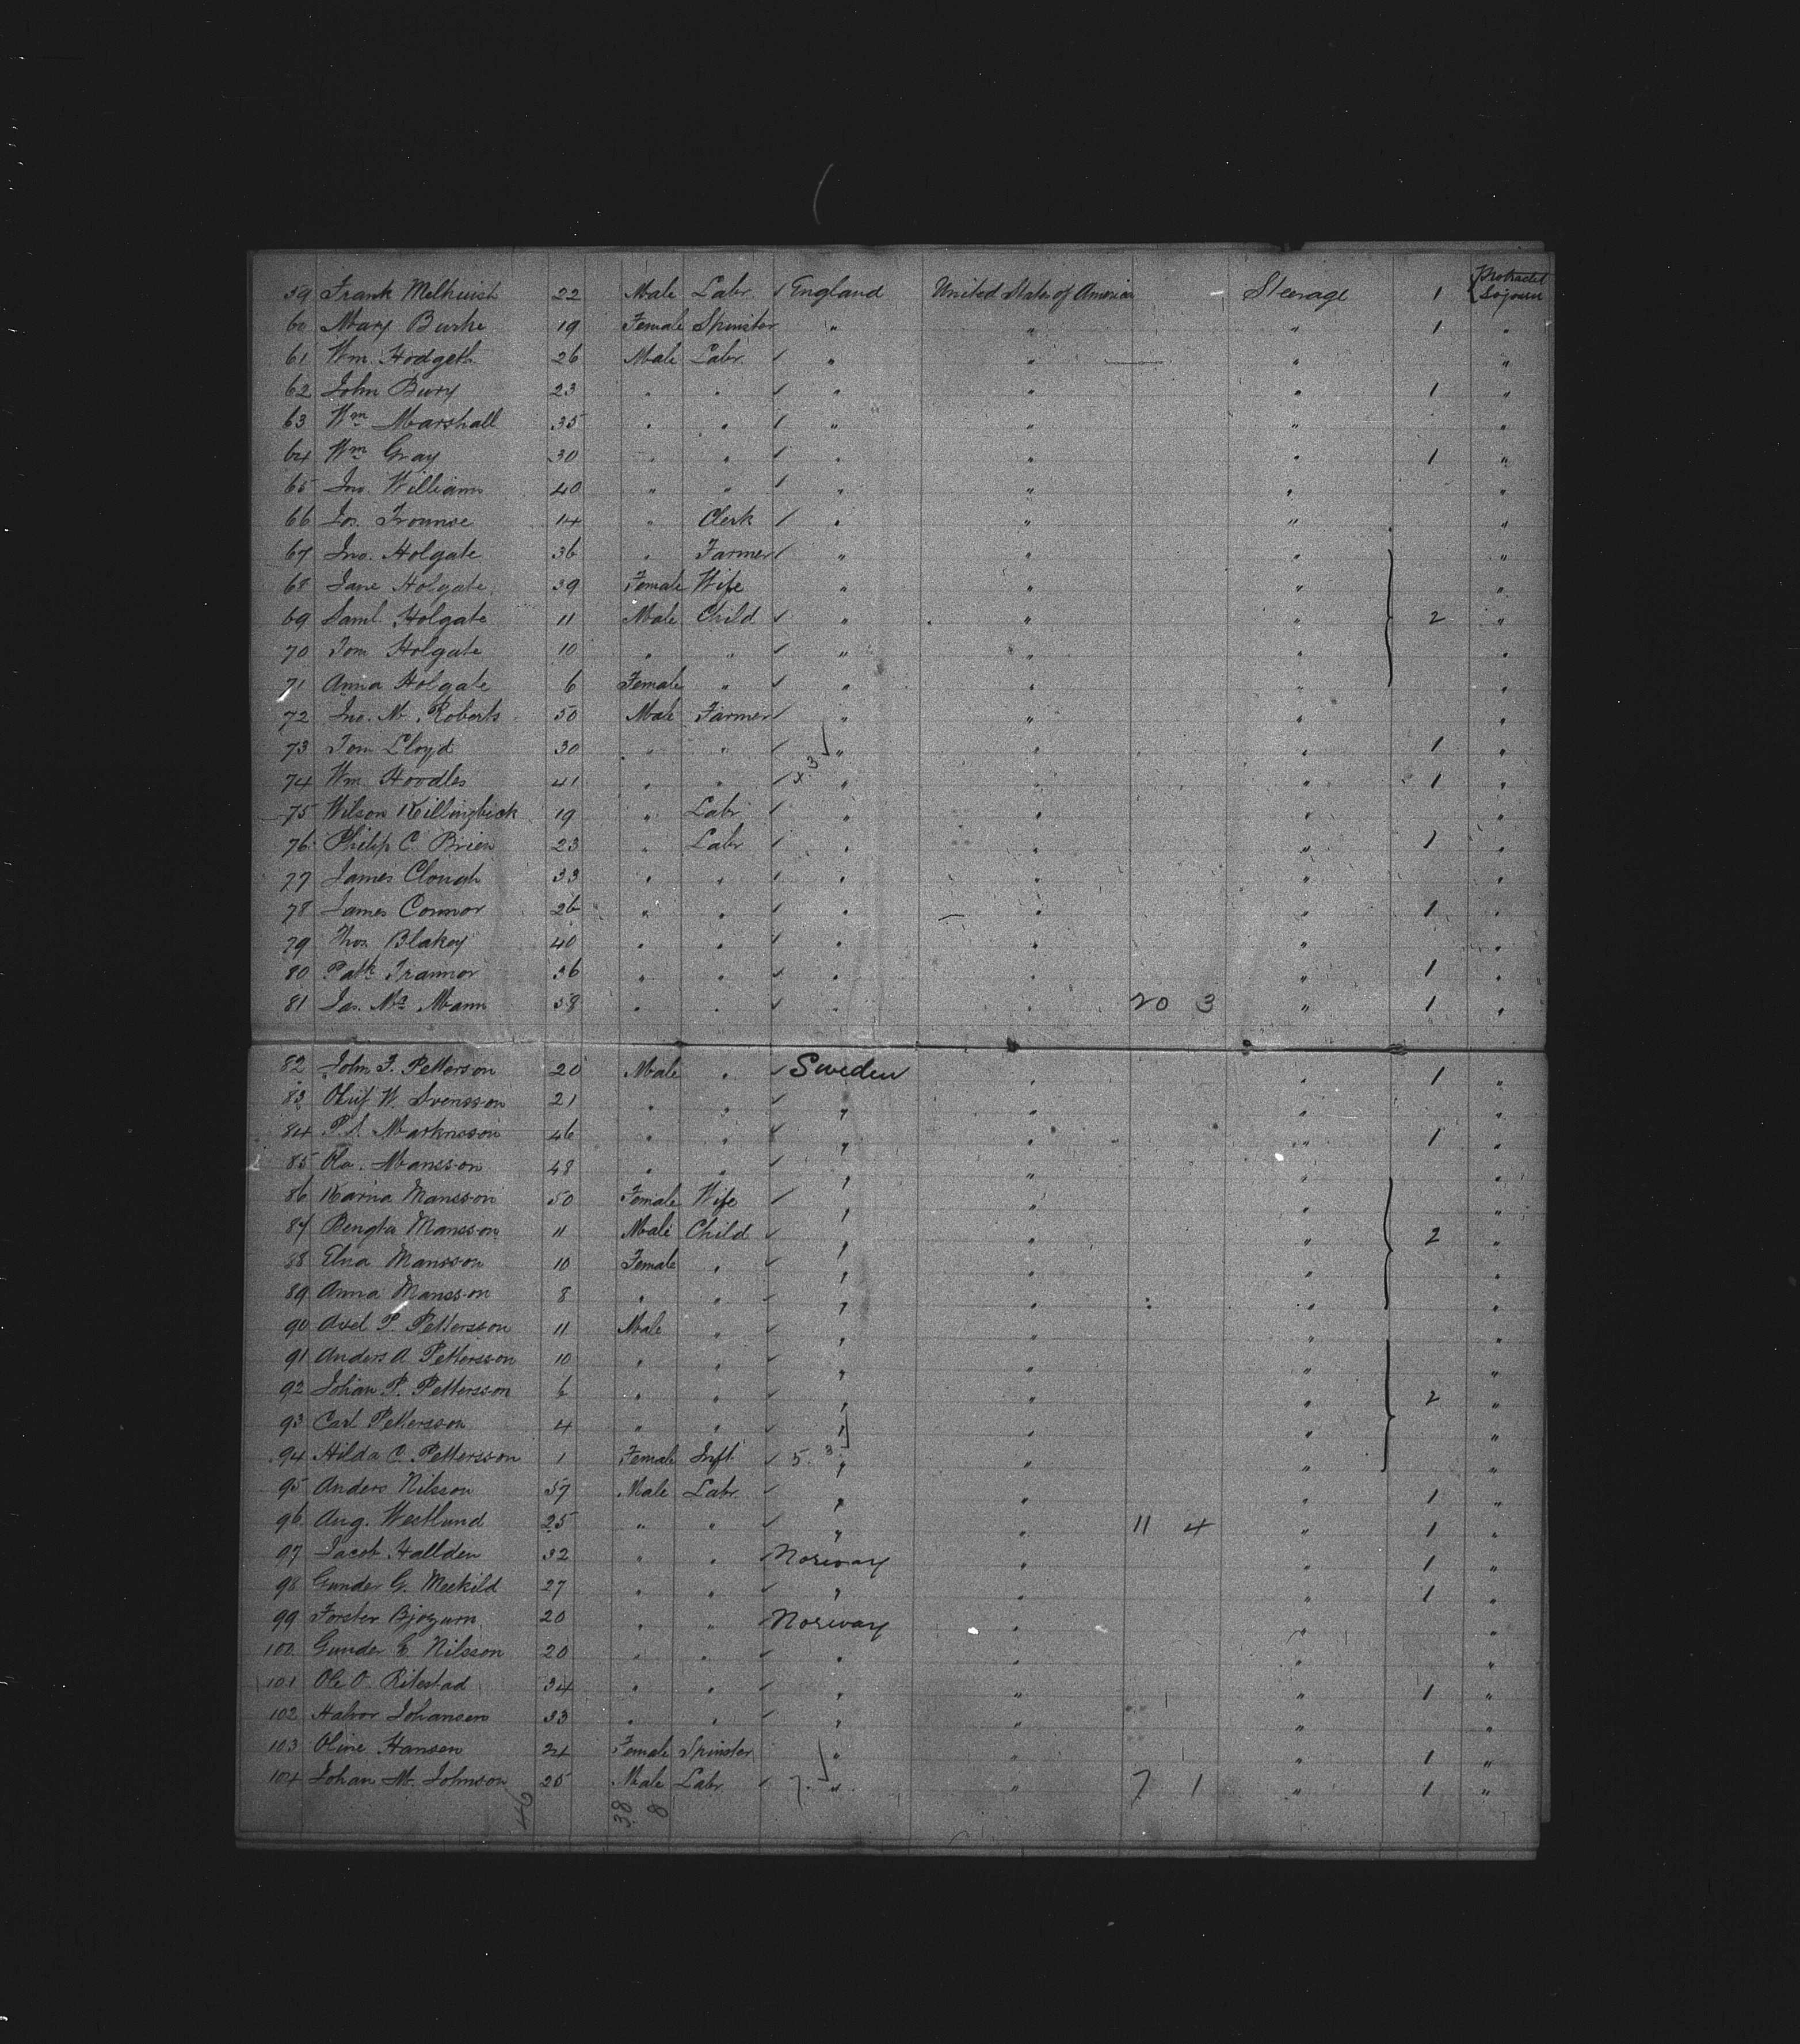 59 Frank Melhuish 22 Male Labr / England United States of America Steerage 1 { Protracted Sojourn
60 Mary Burke 19 Female Spinster " " " 1 "
61 Wm. Hodgeth 26 Male Labr. / " " " "
62 John Bury 23 " " / " " " 1 "
63 Wm Marshall 35 " " / " " " "
64 Wm Gray 30 " " / " " " 1 "
65 Jno. Williams 40 " " / " " " "
66 Jos. Trounse 14 " Clerk / " " " "
67 Jno. Holgate 36 " Farmer / " " " "
68 Jane Holgate 39 Female Wife " " " "
69 Saml. Holgate 11 Male Child / " " " 2 "
70 Tom Holgate 10 " " / " " " "
71 Anna Holgate 6 Female " / " " " "
72 Jno. M. Roberts 50 Male Farmer / " " " "
73 Tom Lloyd 30 " " / " " " 1 "
74 Wm. Hoodles 41 " " / " " " 1 "
75 Wilson Killingbick 19 " Labr / " " " "
76 Philip C. Brien 23 " Labr / " " " 1 "
77 James Clough 33 " " / " " " "
78 James Connor 26 " " / " " " 1 "
79 Thos. Blakey 40 " " / " " " "
80 Patk Trannor 36 " " / " " " 1 "
81 Jas. Mc Mann 58 " " / " " 20 3 " 1 "
82 John F. Petterson 20 Male " / Sweden " " 1 "
83 W. Svensson 21 " " / " " " "
84 P. S. 46 " " / " " " 1 "
85 Ola. Mansson 48 " " / " " " "
86 Karna Mansson 50 Female Wife / " " " "
87 Bengta Mansson 11 Male Child / " " " 2 "
88 Elna Mansson 10 Female " / " " " "
89 Anna Mansson 8 " " / " " " "
90 Axel P. Pettersson 11 Male " / " " " "
91 Anders A. Pettersson 10 " " / " " " "
92 Johan P. Pettersson 6 " " / " " " 2 "
93 Carl Pettersson 4 " " / " " " "
94 Hilda C. Pettersson 1 Female Inft. / 5. 3. " " " "
95 Anders Nilsson 37 Male Labr. / " " " 1 "
96 Aug. Westlund 25 " " / " " 11 4 " 1 "
97 Jacob Hallden 32 " " Norway " " 1 "
98 Gunder G. Meekild 27 " " / " " " 1 "
99 Forster 20 " " Norway " " "
100 Gunder E. Nilsson 20 " " / " " " "
101 Ole O. Ritestad 34 " " / " " " 1 "
102 Halvor Johansen 33 " " / " " " "
103 Oline Hansen 24 Female Spinster " " " 1 "
104 Johan M. Johnson 25 Male Labr / 7. " " 7 1 " 1 "
46 38 8